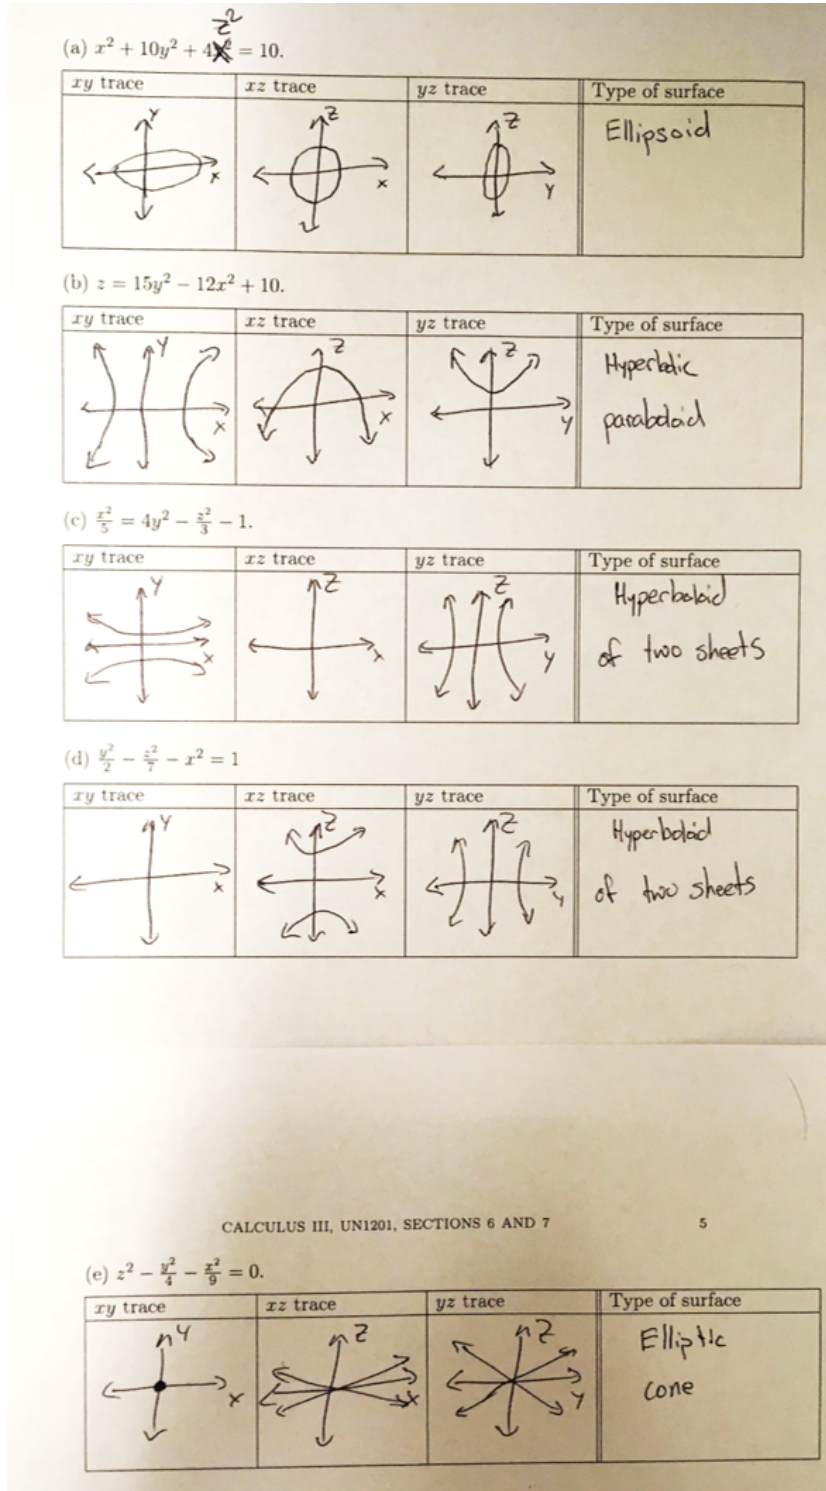 z²
(a) x² + 10y² + 4 = 10.
xy trace xz trace yz trace Type of surface
Y Z Z Ellipsoid
x x Y
(b) z = 15y² − 12x² + 10.
xy trace xz trace yz trace Type of surface
Y Z Z Hyperbolic
x x Y paraboloid
(c) x²/5 = 4y² − z²/3 − 1.
xy trace xz trace yz trace Type of surface
Y Z Z Hyperboloid
x x Y of two sheets
(d) y²/2 − z²/7 − x² = 1
xy trace xz trace yz trace Type of surface
Y Z Z Hyperboloid
x x Y of two sheets
CALCULUS III, UN1201, SECTIONS 6 AND 7 5
(e) z² − y²/4 − x²/9 = 0.
xy trace xz trace yz trace Type of surface
Y Z Z Elliptic
x x Y cone